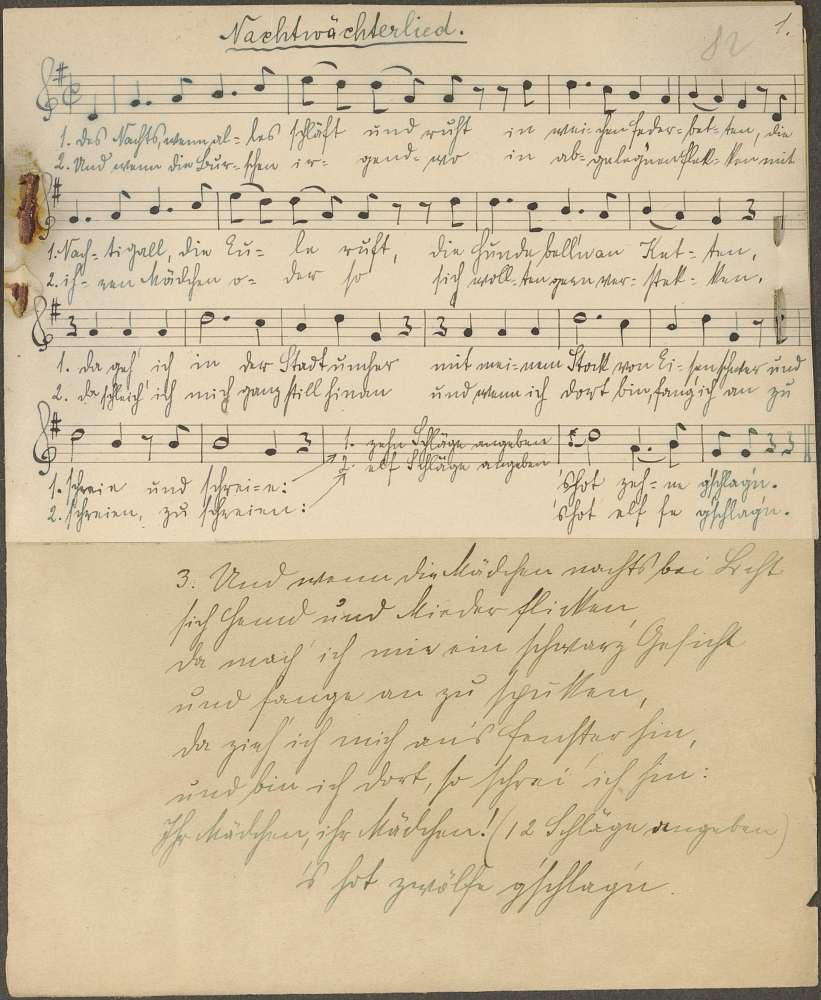 Nachtwächterlied.
1.
82
1. Des Nachts, wenn al-les schläft und ruht in wei-chen Feder-bet-ten, die
2. Und wenn die Bur-schen ir-gend-wo in ab-gelegnen Flek-ken mit
1. Nach-tigall, die Eu-le ruft, die Hunde belln an Ket-ten,
2. ih-ren Mädchen o-der so sich woll-ten gern ver-stek-ken.
1. da geh' ich in der Stadt umher mit mei-nem Stock von Ei-sen schwer und
2. da schleich' ich mich ganz still hinan und wenn ich dort bin, fang' ich an zu
1. zehn Schläge angeben
2. elf Schläge angeben
1. schreie und schrei-e: 'shot zeh-ne g'schlag'n.
2. schreien, zu schreien: 'shot elf fe g'schlag'n.
3. Und wenn die Mädchen nachts bei Licht
sich Hemd und Mieder flicken,
da mach' ich mir ein schwarz Gesicht
und fange an zu spukken,
da zieh' ich mich ans Fenster hin,
und bin ich dort, so schrei' ich hin:
Ihr Mädchen, ihr Mädchen! (12 Schläge angeben)
's hot zwölfe g'schlag'n.